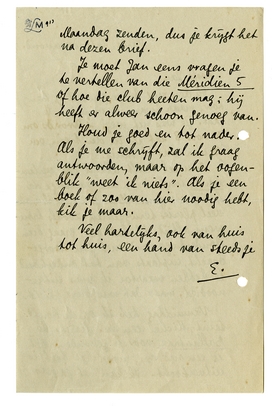 Maandag zenden, dus je krijgt het
na dezen brief.
Je moet Jan eens vragen je
te vertellen van die Méridien 5
of hoe die club heeten mag; hij
heeft er alweer schoon genoeg van.
Houd je goed en tot nader.
Als je me schrijft, zal ik graag
antwoorden, maar op het oogen-
blik "weet ik niets". Als je een
boek of zoo van hier noodig hebt,
kik je maar.
Veel hartelijks, ook van huis
tot huis, een hand van steeds je
E.